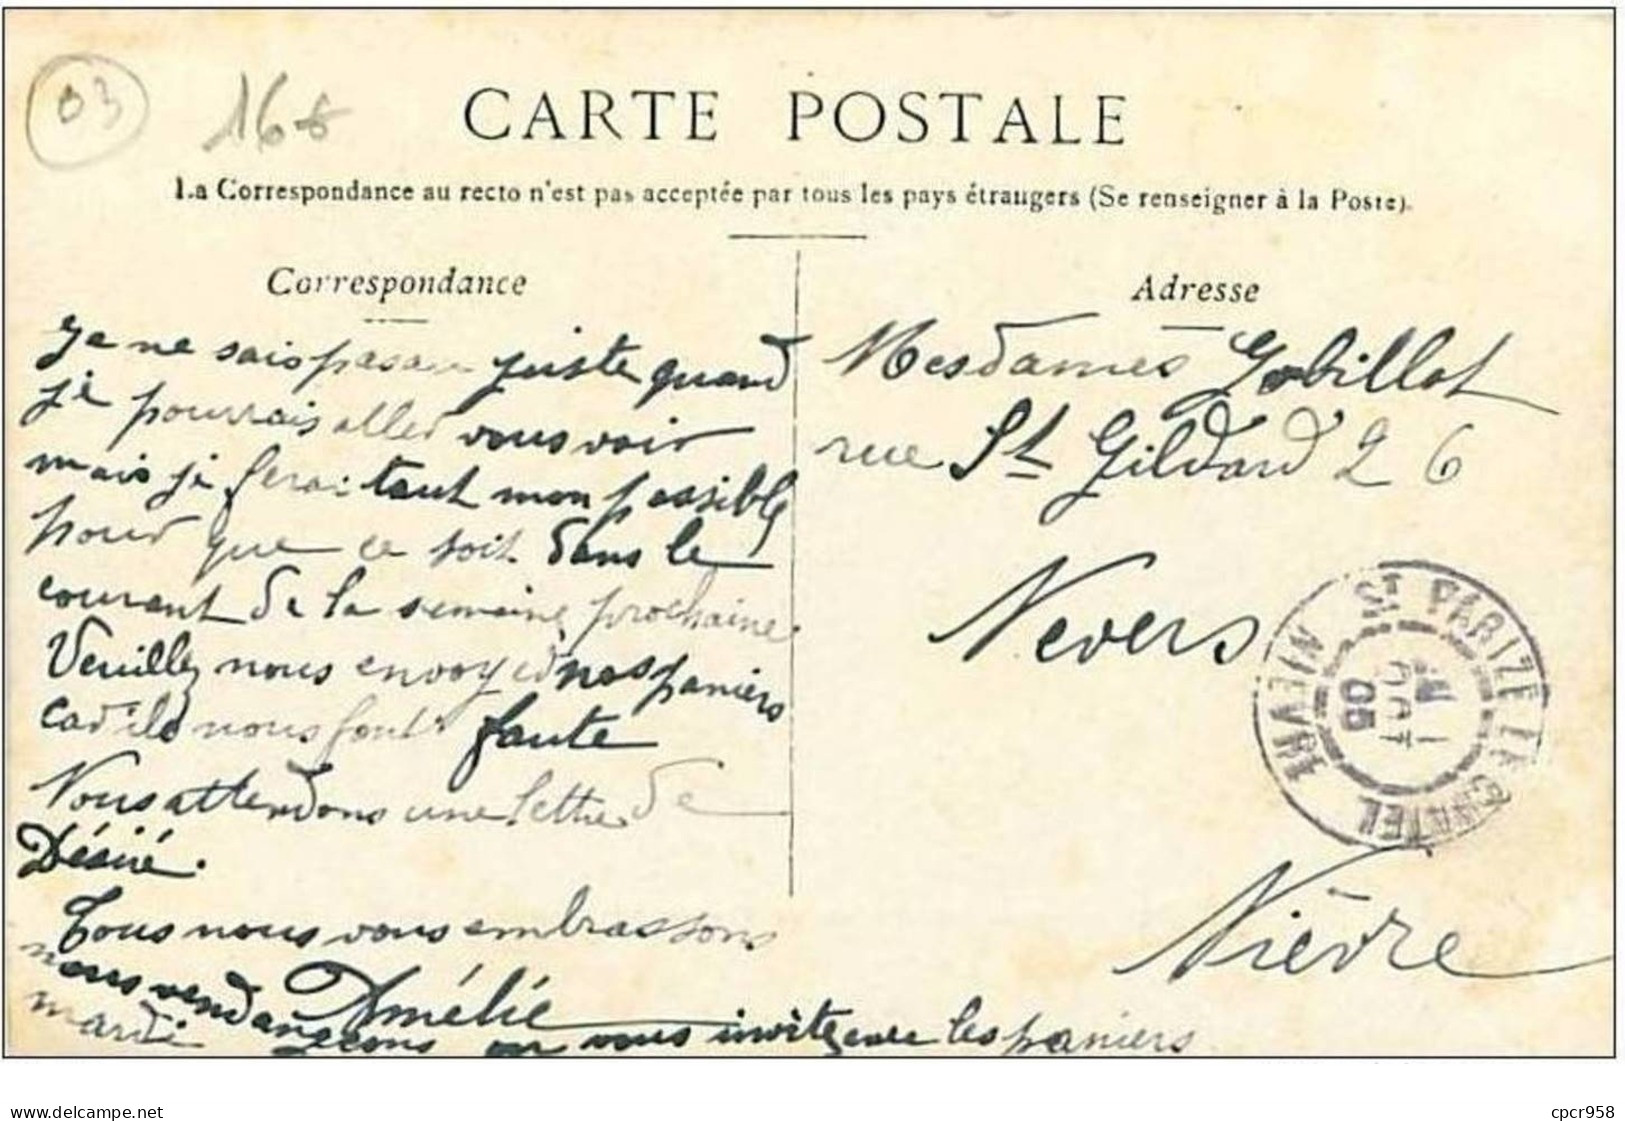 03
CARTE POSTALE
La Correspondance au recto n'est pas acceptée par tous les pays étrangers (Se renseigner à la Poste).
Correspondance
Je ne sais pas au juste quand
je pourrais aller vous voir
mais je ferai tout mon possible
pour que ce soit dans le
courant de la semaine prochaine
Veuillez nous envoyer nos paniers
car ils nous font faute
Nous attendons une lettre de
Désiré.
Tous nous vous embrassons
Amélie
nous vendangeons on vous invite avec les paniers
mardi
Adresse
Mesdames Gobillot
rue St Gildard 26
Nevers
Nièvre
ST PARIZE LE CHATEL
NIEVRE
AOUT
05
delcampe.net
cpcr958